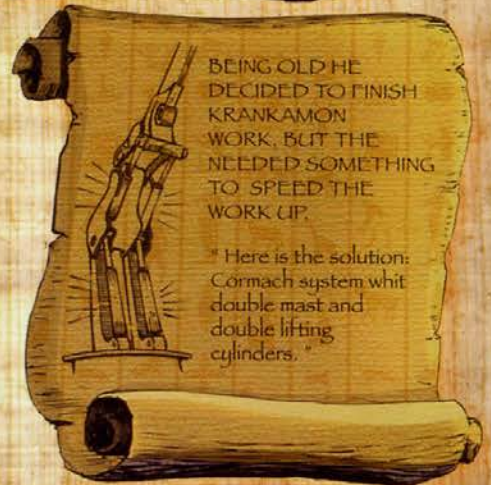 BEING OLD HE
DECIDED TO FINISH
KRANKAMON
WORK, BUT THE
NEEDED SOMETHING
TO SPEED THE
WORK UP.
" Here is the solution:
Cormach system whit
double mast and
double lifting
cylinders. "